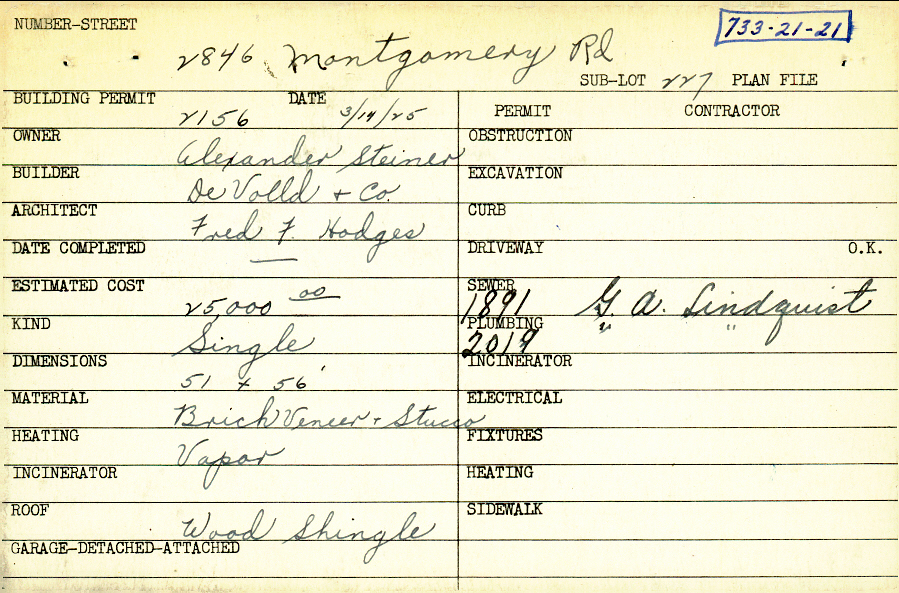 NUMBER-STREET
733-21-21
2846 Montgomery Rd
SUB-LOT 227 PLAN FILE
BUILDING PERMIT 2156 DATE 3/14/25
PERMIT CONTRACTOR
OWNER Alexander Steiner
OBSTRUCTION
BUILDER De Volld + Co.
EXCAVATION
ARCHITECT Fred F. Hodges
CURB
DATE COMPLETED —
DRIVEWAY O.K.
ESTIMATED COST 25,000 00
SEWER 1891 G. A. Lindquist
KIND Single
PLUMBING 2019 " "
DIMENSIONS 51 x 56'
INCINERATOR
MATERIAL Brick Veneer + Stucco
ELECTRICAL
HEATING Vapor
FIXTURES
INCINERATOR
HEATING
ROOF Wood Shingle
SIDEWALK
GARAGE-DETACHED-ATTACHED